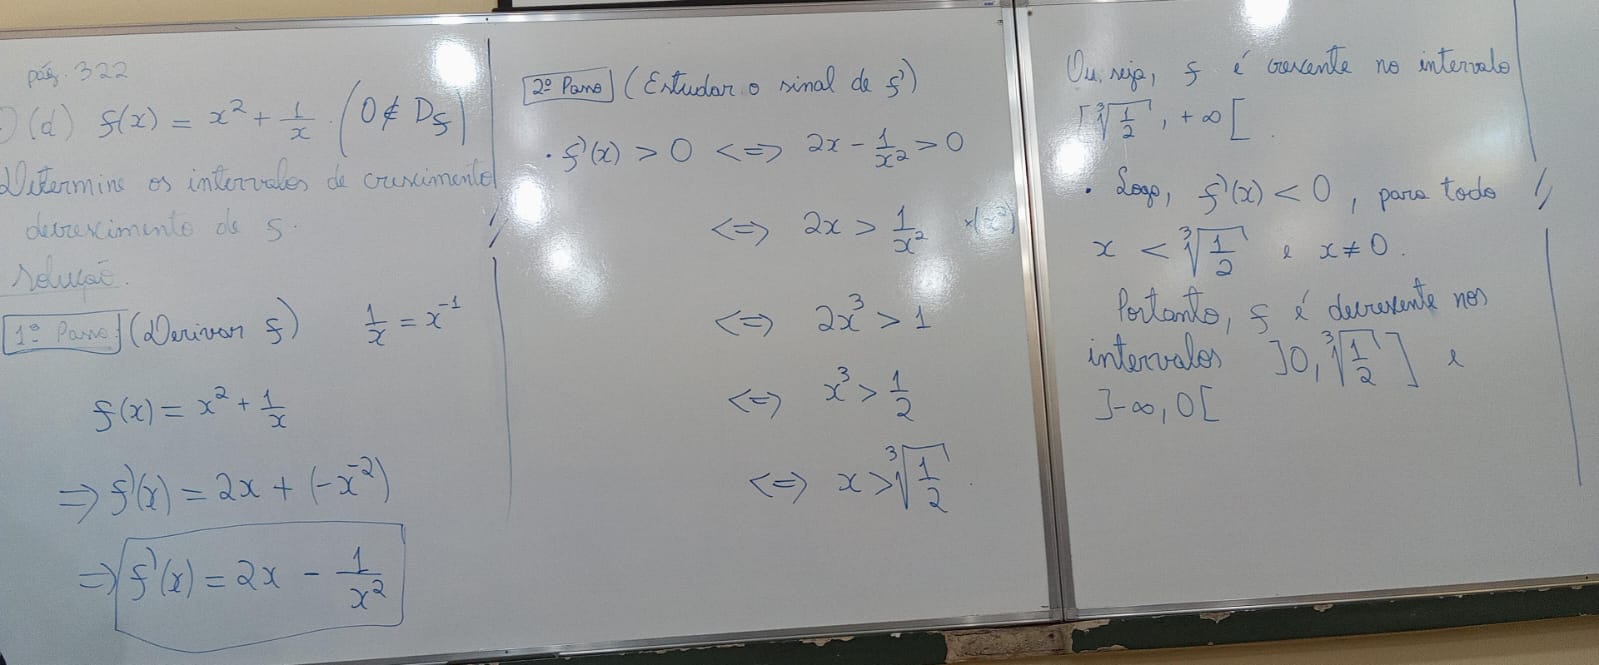 pág. 322
(d) f(x) = x² + 1/x . (0 ∉ Df)
Determine os intervalos de crescimento
decrescimento de f.
solução.
1º Passo (Derivar f) 1/x = x⁻¹
f(x) = x² + 1/x
=> f'(x) = 2x + (-x⁻²)
=> f'(x) = 2x - 1/x²
2º Passo (Estudar o sinal de f')
. f'(x) > 0 <=> 2x - 1/x² > 0
<=> 2x > 1/x² x(x²)
<=> 2x³ > 1
<=> x³ > 1/2
<=> x > ∛(1/2) .
Ou seja, f é crescente no intervalo
[∛(1/2), +∞[ .
. Logo, f'(x) < 0, para todo
x < ∛(1/2) e x ≠ 0.
Portanto, f é decrescente nos
intervalos ]0, ∛(1/2)] e
]-∞, 0[